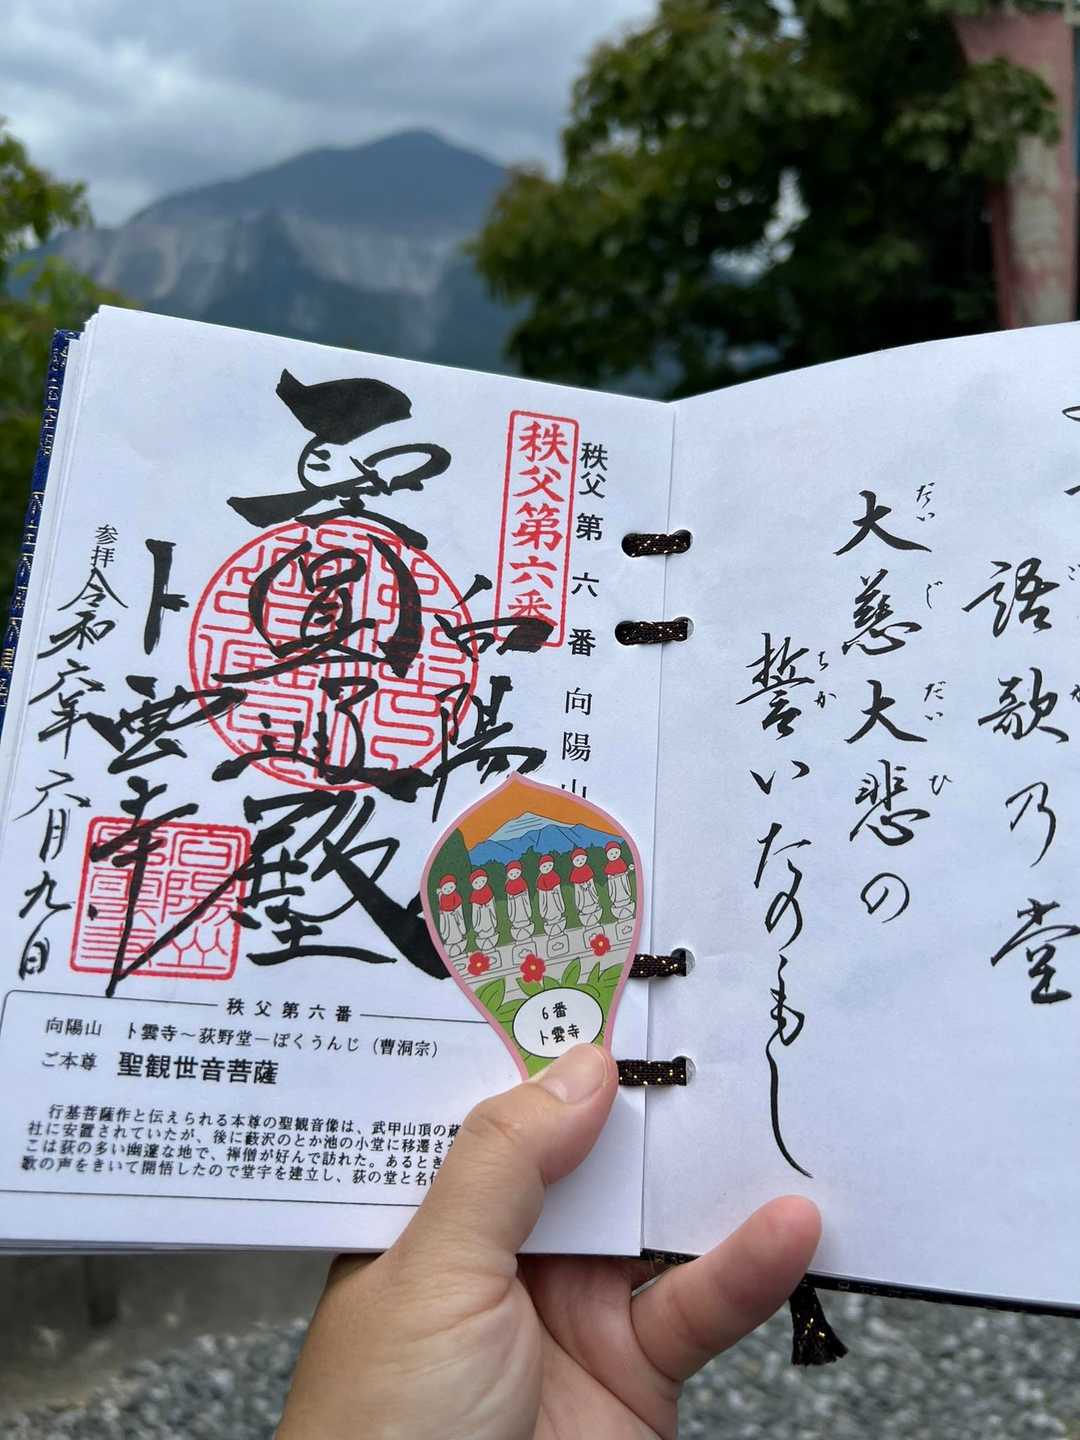 語歌乃堂
大慈大悲の
だいじだいひ
誓いたのもし
ちか
秩父第六番 向陽山
秩父第六番
向陽
聖
圓通殿
卜雲寺
参拝
令和六年六月九日
6番
卜雲寺
秩父第六番
向陽山 卜雲寺～荻野堂－ぼくうんじ（曹洞宗）
ご本尊 聖観世音菩薩
行基菩薩作と伝えられる本尊の聖観音像は、武甲山頂の蔵
社に安置されていたが、後に藪沢のとか池の小堂に移遷さ
こは荻の多い幽邃な地で、禅僧が好んで訪れた。あるとき
歌の声をきいて開悟したので堂宇を建立し、荻の堂と名